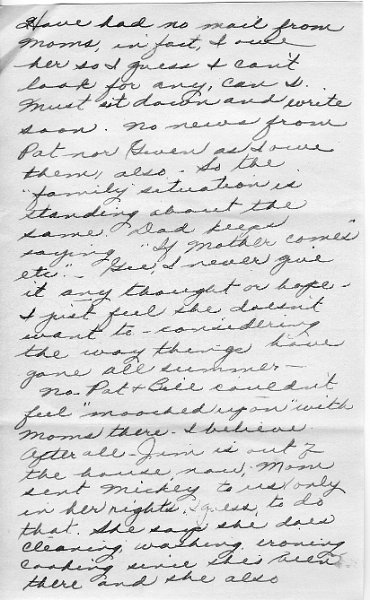 Have had no mail from
Moms, in fact, I owe
her so I guess I can't
look for any, can I.
Must sit down and write
soon. No news from
Pat nor Gwen as I owe
them, also. So the
"family" situation is
standing about the
same. Dad keeps
saying "If Mother comes"
etc" - Gee, I never give
it any thought or hope -
I just feel she doesn't
want to - considering
the way things have
gone all summer -
No. Pat & Bill couldn't
feel "mooched upon" with
Moms there - I believe.
After all - Jim is out of
the house, now. Mom
sent Mickey to us only
in her rights, I guess, to do
that. She says she does
cleaning, washing, ironing
cooking since she's been
there and she also